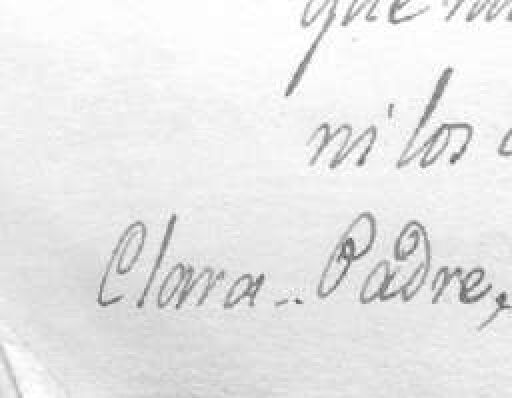 que
ni los
Clara.. Padre,